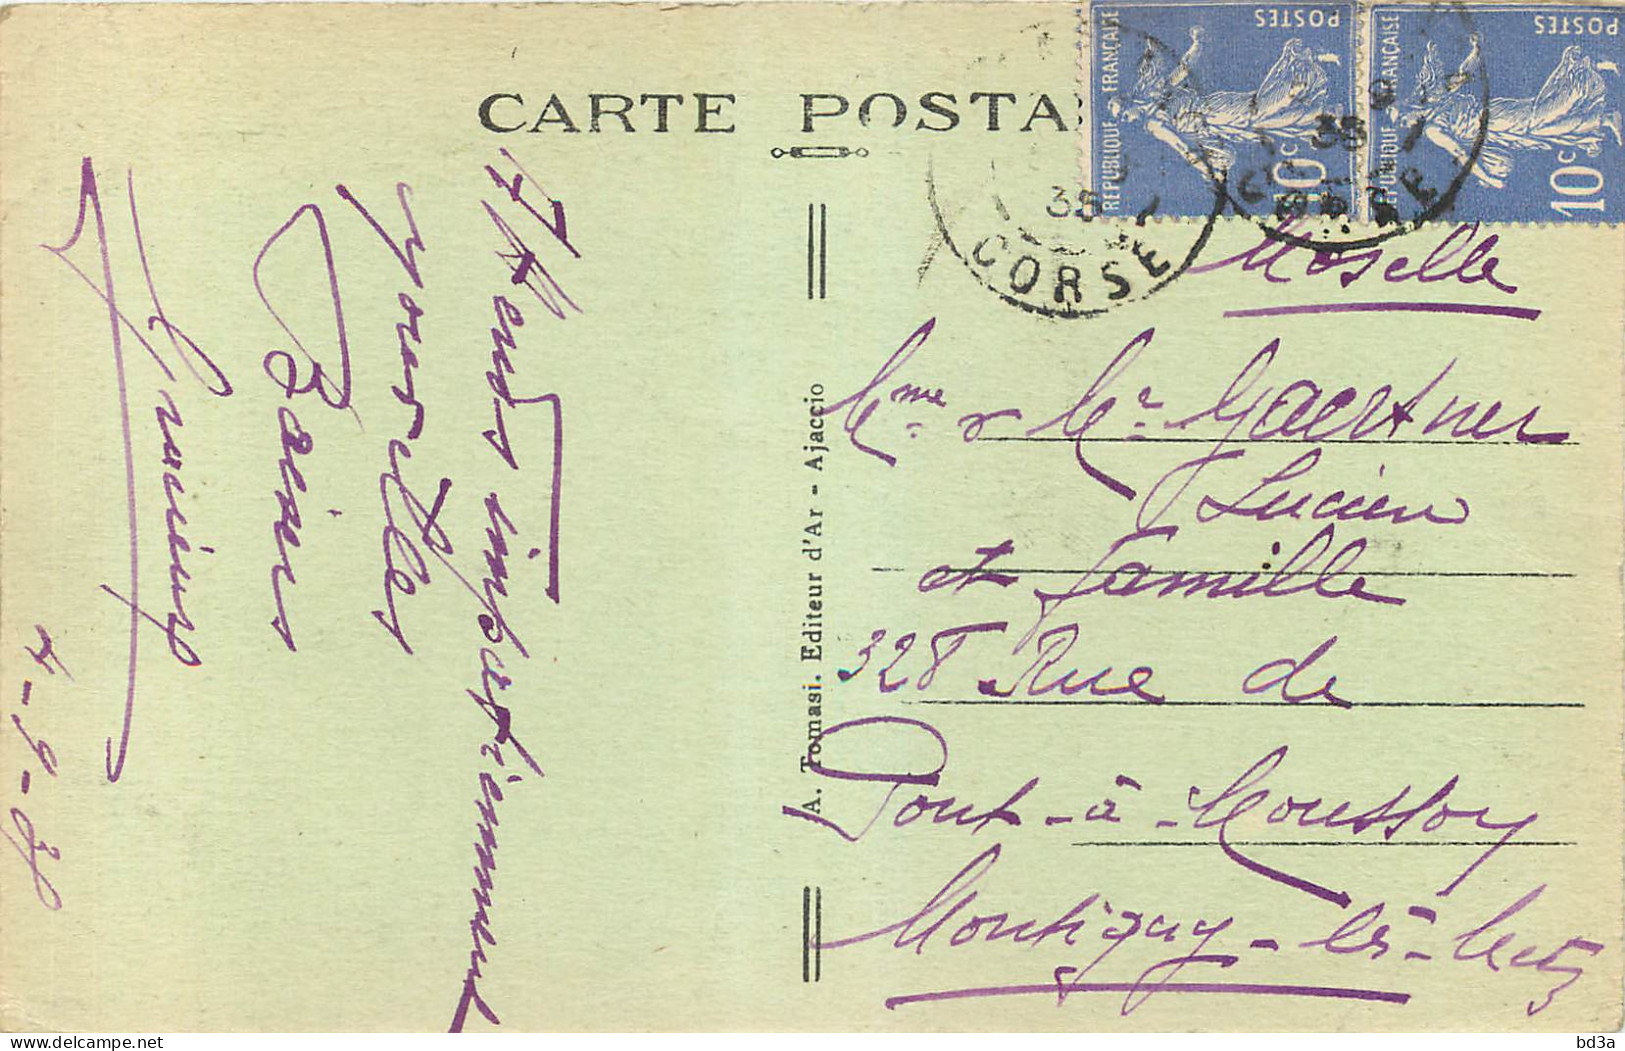 CARTE POSTA
RÉPUBLIQUE FRANÇAISE
POSTES
10c
RÉPUBLIQUE FRANÇAISE
POSTES
10c
38
CORSE
38
A. Tomasi. Editeur d'Ar - Ajaccio
Attends impatiemment
nouvelles
Baisers
Lucienne
7-9-38
Moselle
Mme & Mr Gaertner
Lucien
et famille
328 Rue de
Pont-à-Mousson
Montigny-lès-Metz
delcampe.net
bd3a